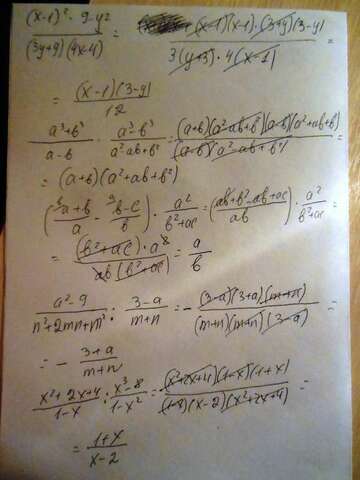 (x-1)² · 9-y² / (3y+9)(4x-4) = (x-1)(x-1)·(3+y)(3-y) / 3(y+3)·4(x-1) =
= (x-1)(3-y) / 12
a³+b³ / a-b · a³-b³ / a²-ab+b² = (a+b)(a²-ab+b²)(a-b)(a²+ab+b²) / (a-b)(a²-ab+b²) =
= (a+b)(a²+ab+b²)
(a+b / a - b-c / b) · a² / b²+ac = (ab+b²-ab+ac / ab) · a² / b²+ac =
= (b²+ac)·a² / ab(b²+ac) = a / b
a²-9 / n³+2mn+m³ : 3-a / m+n = - (3-a)(3+a)(m+n) / (m+n)(m+n)(3-a) =
= - 3+a / m+n
x²+2x+4 / 1-x : x³-8 / 1-x² = (x²+2x+4)(1-x)(1+x) / (1-x)(x-2)(x²+2x+4) =
= 1+x / x-2